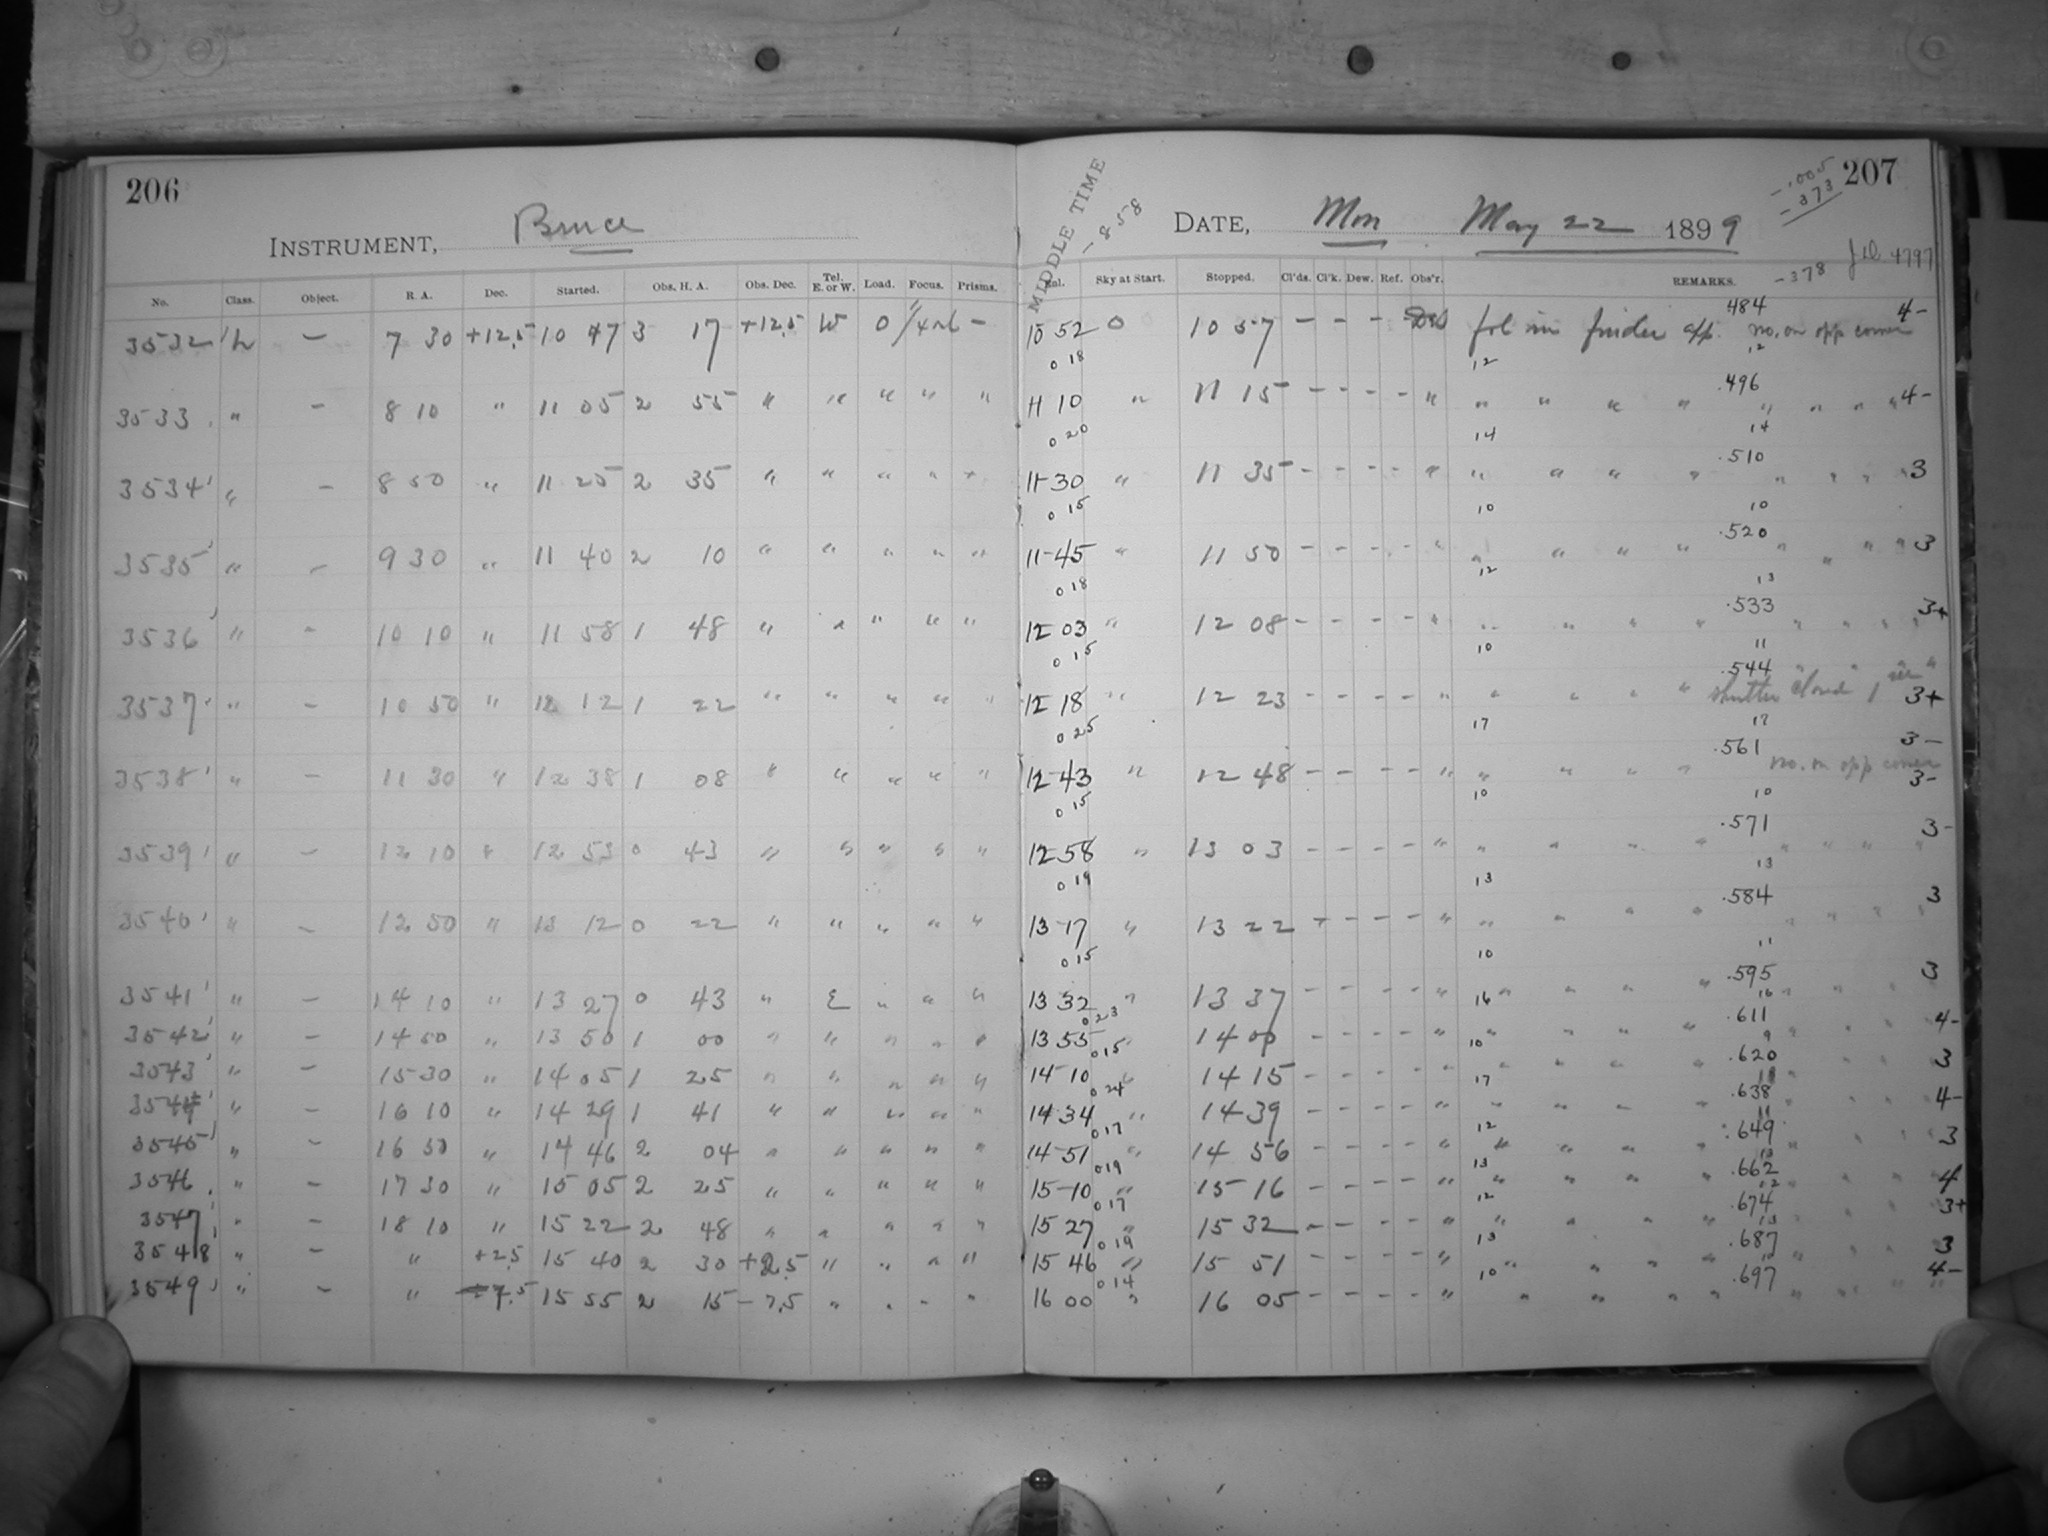 206
INSTRUMENT, Bruce
No. Class. Object. R. A. Dec. Started. Obs. H. A. Obs. Dec. Tel. E. or W. Load. Focus. Prisms.
3532 L — 7 30 +12.5 10 47 3 17 +12.5 W 0 —
3533 " — 8 10 " 11 05 2 55 " " " " "
3534 " — 8 50 " 11 25 2 35 " " " " "
3535 " — 9 30 " 11 40 2 10 " " " " "
3536 " — 10 10 " 11 58 1 48 " " " " "
3537 " — 10 50 " 12 12 1 22 " " " " "
3538 " — 11 30 " 12 38 1 08 " " " " "
3539 " — 12 10 " 12 53 0 43 " " " " "
3540 " — 12 50 " 13 12 0 22 " " " " "
3541 " — 14 10 " 13 27 0 43 " E " " "
3542 " — 14 50 " 13 50 1 00 " " " " "
3543 " — 15 30 " 14 05 1 25 " " " " "
3544 " — 16 10 " 14 29 1 41 " " " " "
3545 " — 16 50 " 14 46 2 04 " " " " "
3546 " — 17 30 " 15 05 2 25 " " " " "
3547 " — 18 10 " 15 22 2 48 " " " " "
3548 " — " +2.5 15 40 2 30 +2.5 " " " "
3549 " — " -7.5 15 55 2 15 -7.5 " " " "
207
-.005
-.373
MIDDLE TIME
-858
DATE, Mon May 22 1899
JD 4797
-378
Sky at Start. Stopped. Cl'ds. Cl'k. Dew. Ref. Obs'r. REMARKS.
484
10 52 0 10 57 — — — fol in finder ap. no. on opp corner 4-
0 18 12 12
.496
11 10 " 11 15 — — — — " " " " " " " " " 4-
0 20 14 14
.510
11 30 " 11 35 — — — — " " " " " " " " " 3
0 15 10 10
.520
11 45 " 11 50 — — — — " " " " " " " " " 3
0 18 12 13
.533
12 03 " 12 08 — — — — " " " " " " " " " 3+
0 15 10 11
.544
12 18 " 12 23 — — — — " " " " " shutter "closed" 3+
0 25 17 17
.561 3-
12 43 " 12 48 — — — — " " " " " no. on opp corner 3-
0 15 10 10
.571
12 58 " 13 03 — — — — " " " " " " " " " 3-
0 19 13 13
.584
13 17 " 13 22 — — — — " " " " " " " " " 3
0 15 10 11
.595
13 32 " 13 37 — — — — " " " " " " " " " 3
0 23 16 16
.611
13 55 " 14 00 — — — — " " " " " " " " " 4-
0 15 10 9
.620
14 10 " 14 15 — — — — " " " " " " " " " 3
0 24 17 18
.638
14 34 " 14 39 — — — — " " " " " " " " " 4-
0 17 12 11
.649
14 51 " 14 56 — — — — " " " " " " " " " 3
0 19 13 13
.662
15 10 " 15 16 — — — — " " " " " " " " " 4
0 17 12 12
.674
15 27 " 15 32 — — — — " " " " " " " " " 3+
0 19 13 13
.687
15 46 " 15 51 — — — — " " " " " " " " " 3
0 14 10
.697
16 00 " 16 05 — — — — " " " " " " " " " 4-